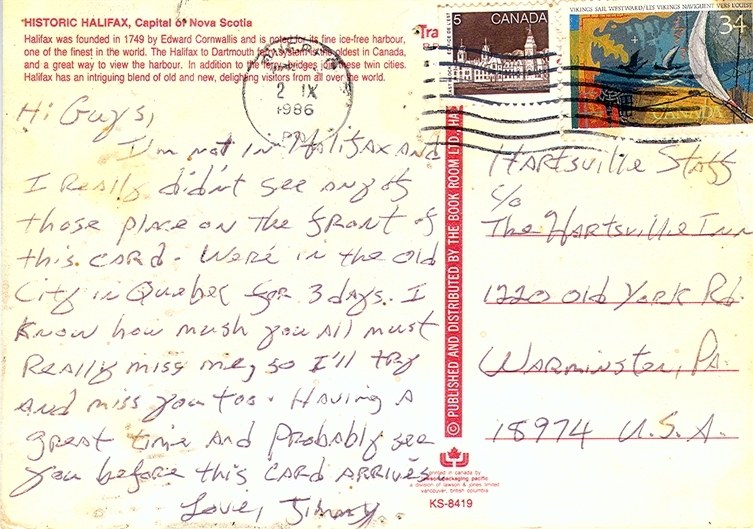 HISTORIC HALIFAX, Capital of Nova Scotia
Halifax was founded in 1749 by Edward Cornwallis and is noted for its fine ice-free harbour,
one of the finest in the world. The Halifax to Dartmouth ferry system is the oldest in Canada,
and a great way to view the harbour. In addition to the ferry, bridges join these twin cities.
Halifax has an intriguing blend of old and new, delighting visitors from all over the world.
2 IX
1986
PQ
5 CANADA
VIKINGS SAIL WESTWARD/LES VIKINGS NAVIGUENT VERS L'OUEST
34
CANADA
Hi Guys,
I'm not in Halifax and
I Really didn't see any of
those place on the front of
this card. Were in the old
City in Quebec for 3 days. I
Know how mush you all must
Really miss me, so I'll try
and miss you too. Having a
great time and Probably see
you before this card arrives.
Love, Jimmy
© PUBLISHED AND DISTRIBUTED BY THE BOOK ROOM LTD., HA
Hartsville Staff
c/o
The Hartsville Inn
1220 Old York Rd
Warminster, Pa.
18974 U.S.A.
printed in canada by
a division of lawson & jones limited
vancouver, british columbia
KS-8419